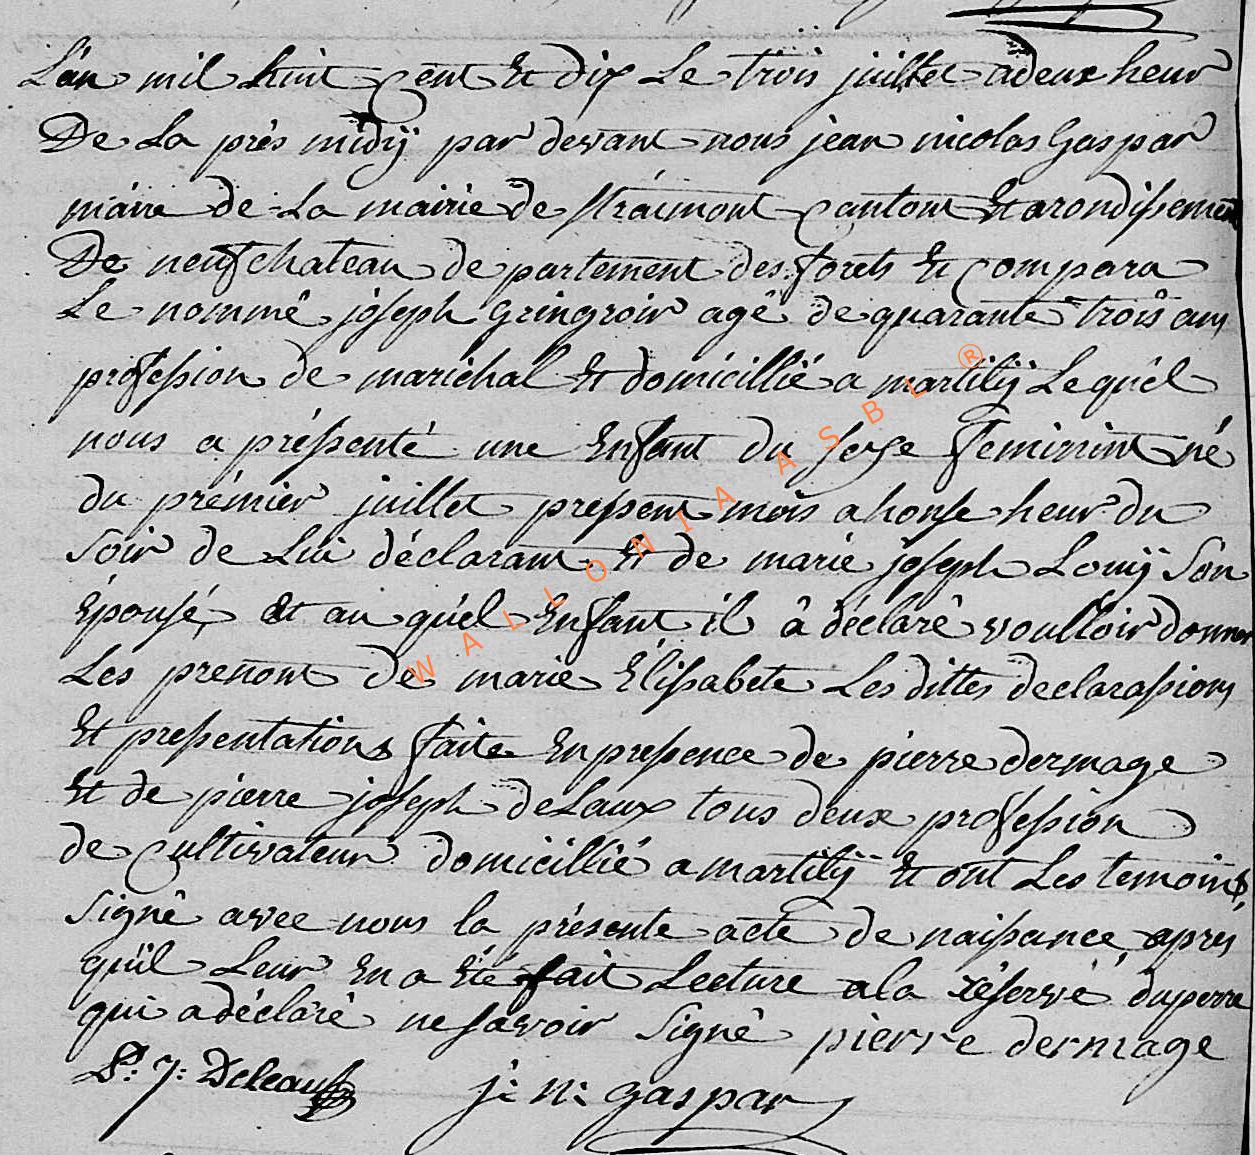 L'an mil huit cent et dix le trois juillet a deux heur
De La prés midÿ par devant nous jean nicolas Gaspar
maire de La mairie de straimont cantont Et arondissement
De neufchateau de partement des forets Et compara
Le nommé joseph Gringroir agé de quarante trois ans
profession de marichal Et domicillié a martilÿ Le quel
nous a préssenté une Enfant du sexe feminint né
du prémier juillet pressent mois a honse heur du
soir de Lui déclarant Et de marie joseph Louÿ son
Épousé, Et au quel Enfant il â déclaré voulloir donner
Les prenont de marie Élissabete Les dittes declarassions
Et pressentations faite En pressence de pierre dermage
Et de pierre joseph deLaux tous deux profession
de cultivateur domicillié a martilÿ Et ont Les temoins,
signé avec nous la présente acte de naissance, apres
qu'il Leur En a Été fait Lecture a la réservé, du perre
qui a déclaré ne savoir signé pierre dermage
P: J: Deleaux j: n: gaspar
WALLONIA ASBL ®